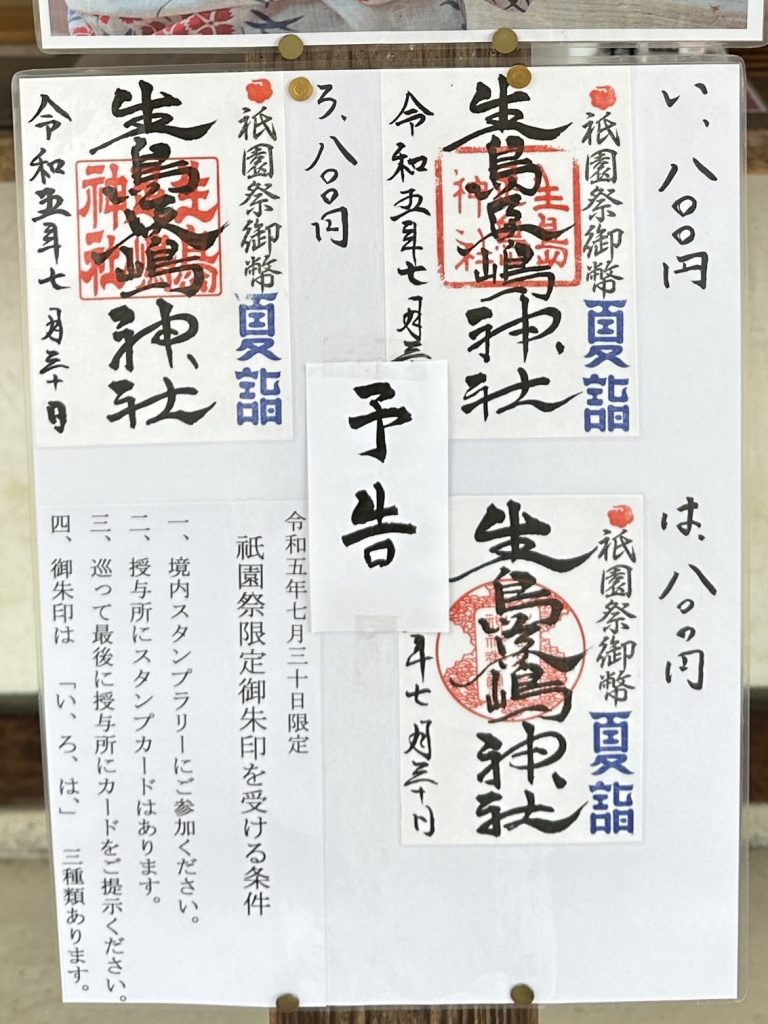 い、八〇〇円
祇園祭御幣
夏詣
生島足嶋神社
令和五年七月三
ろ、八〇〇円
祇園祭御幣
夏詣
生島足嶋神社
令和五年七月三十日
予告
は、八〇〇円
祇園祭御幣
夏詣
生島足嶋神社
年七月三十日
令和五年七月三十日限定
祇園祭限定御朱印を受ける条件
一、境内スタンプラリーにご参加ください。
二、授与所にスタンプカードはあります。
三、巡って最後に授与所にカードをご提示ください。
四、御朱印は 「い、ろ、は、」 三種類あります。